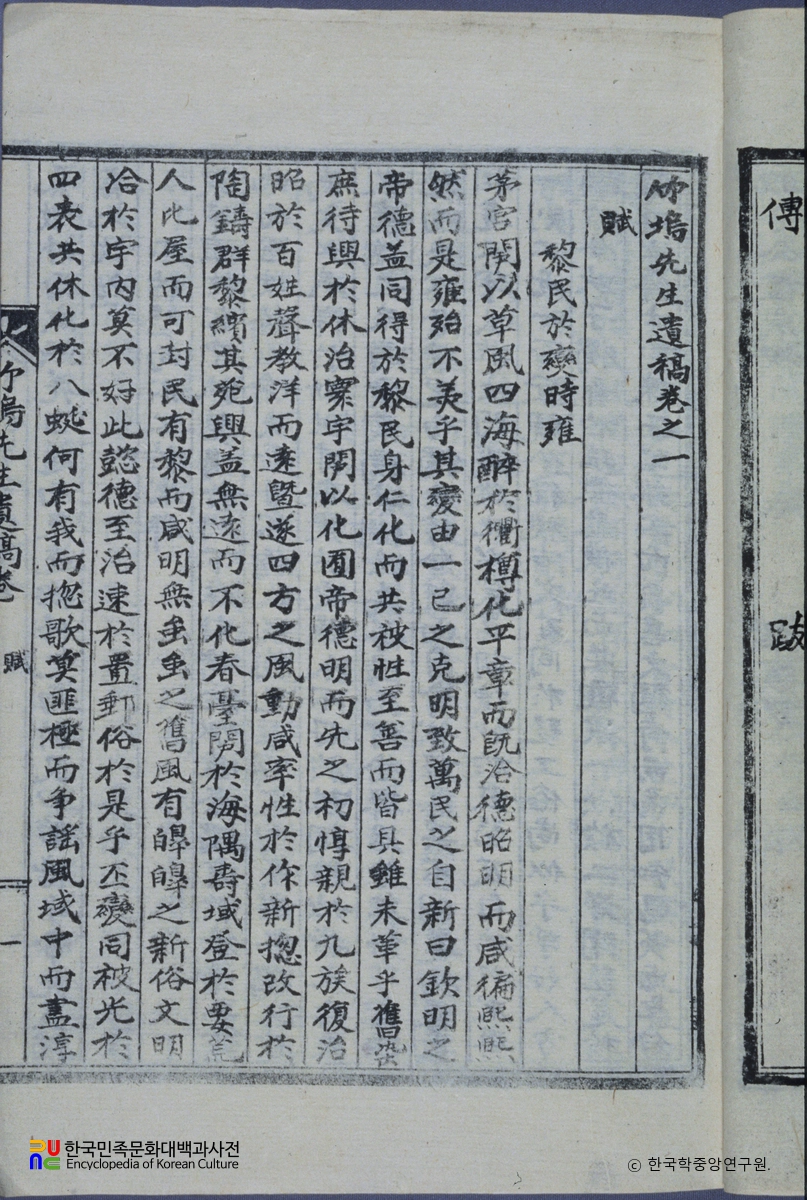 傳
跋
竹塢先生遺稿卷之一
賦
黎民於變時雍
茅宮闢以草風四海醉於衢樽化平章而旣洽德昭明而咸徧熙熙
然而是雍殆不美乎其變由一己之克明致萬民之自新曰欽明之
帝德益同得於黎民身仁化而共被性至善而皆具雖未革乎舊染
庶待興於休治寰宇闢以化囿帝德明而先之初惇親於九族復治
昭於百姓聲教洋而遠曁遂四方之風動咸率性於作新摠改行於
陶鑄群黎繽其苑興盖無遠而不化春臺闢於海隅壽域登於要荒
人比屋而可封民有黎而咸明無蚩蚩之舊風有皡皡之新俗文明
洽於宇內莫不好此懿德至治速於置郵俗於是乎丕變同被光於
四表共休化於八蜒何有我而摠歌莫匪極而爭謠風域中而盡淳
竹塢先生遺稿卷
賦
一
한국민족문화대백과사전
Encyclopedia of Korean Culture
ⓒ 한국학중앙연구원.